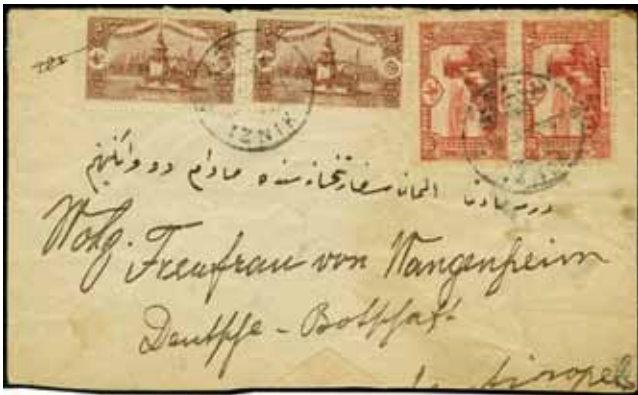 IZNIK
درسعادتده المان سفارتخانه سنده مادام دو وانكنهايم
Wolg. Freifrau von Wangenheim
Deutsche - Botschaft